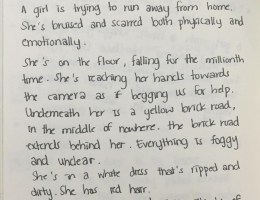 A girl is trying to run away from home.
She's bruised and scarred both physically and
emotionally.
She's on the floor, falling for the millionth
time. She's reaching her hands towards
the camera as if begging us for help.
Underneath her is a yellow brick road,
in the middle of nowhere. the brick road
extends behind her. Everything is foggy
and unclear.
She's in a white dress that's ripped and
dirty. She has red hair.